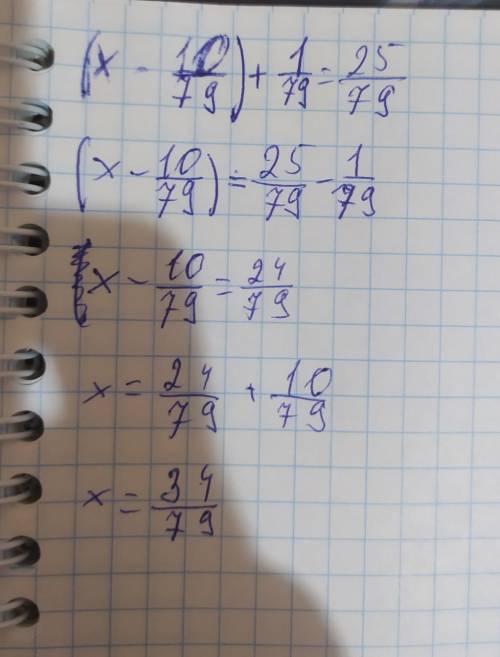 (x - 10/79) + 1/79 = 25/79
(x - 10/79) = 25/79 - 1/79
x - 10/79 = 24/79
x = 24/79 + 10/79
x = 34/79